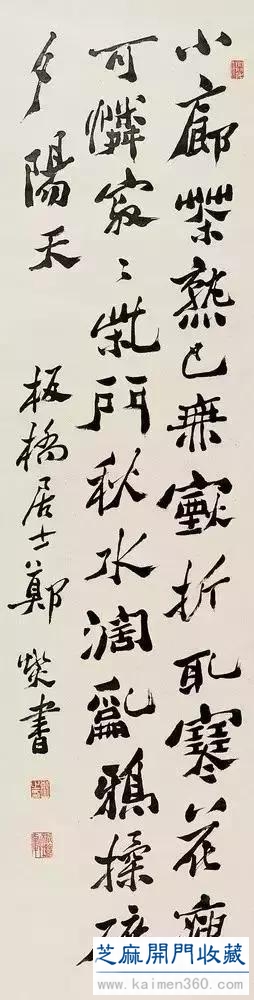 小廊茶熟已無煙折取寒花瘦
可憐寂〻柴門秋水濶亂鴉揉碎
夕陽天
板橋居士鄭燮書
芝麻開門收藏
www.kaimen360.com